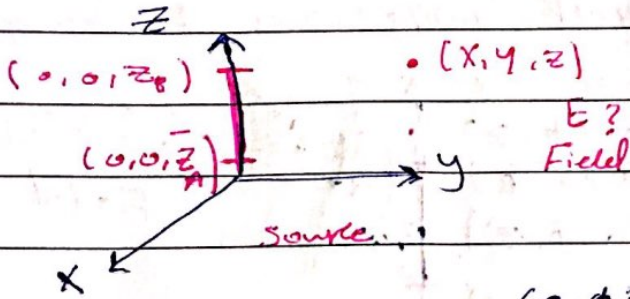 Z
(0,0,z_B)
• (x,y,z)
E?
(0,0,z_A)
Field
y
source
x